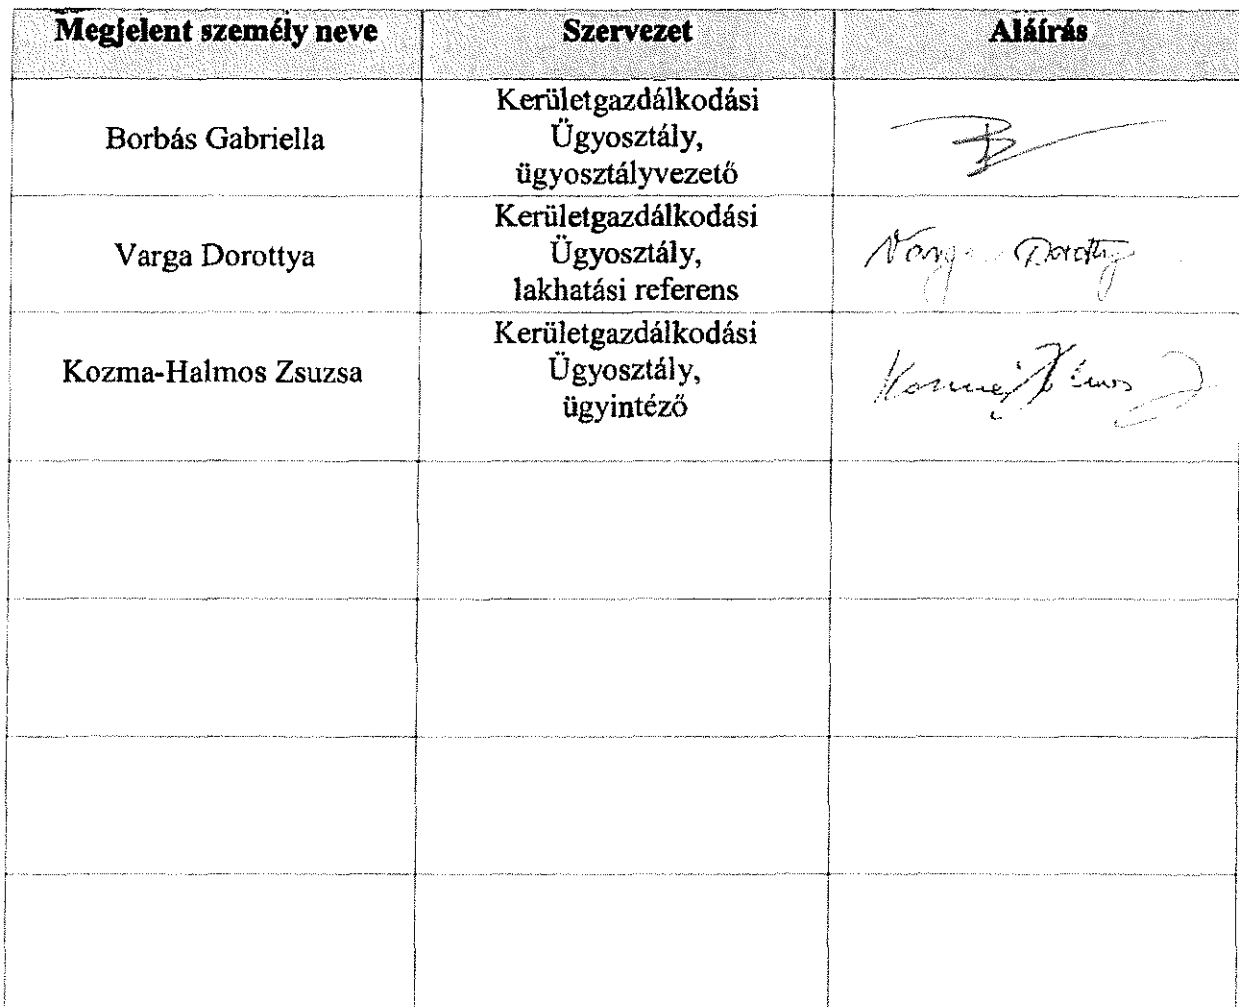 Megjelent személy neve
Szervezet
Aláírás
Borbás Gabriella
Kerületgazdálkodási
Ügyosztály,
ügyosztályvezető
Varga Dorottya
Kerületgazdálkodási
Ügyosztály,
lakhatási referens
Varga Dorottya
Kozma-Halmos Zsuzsa
Kerületgazdálkodási
Ügyosztály,
ügyintéző